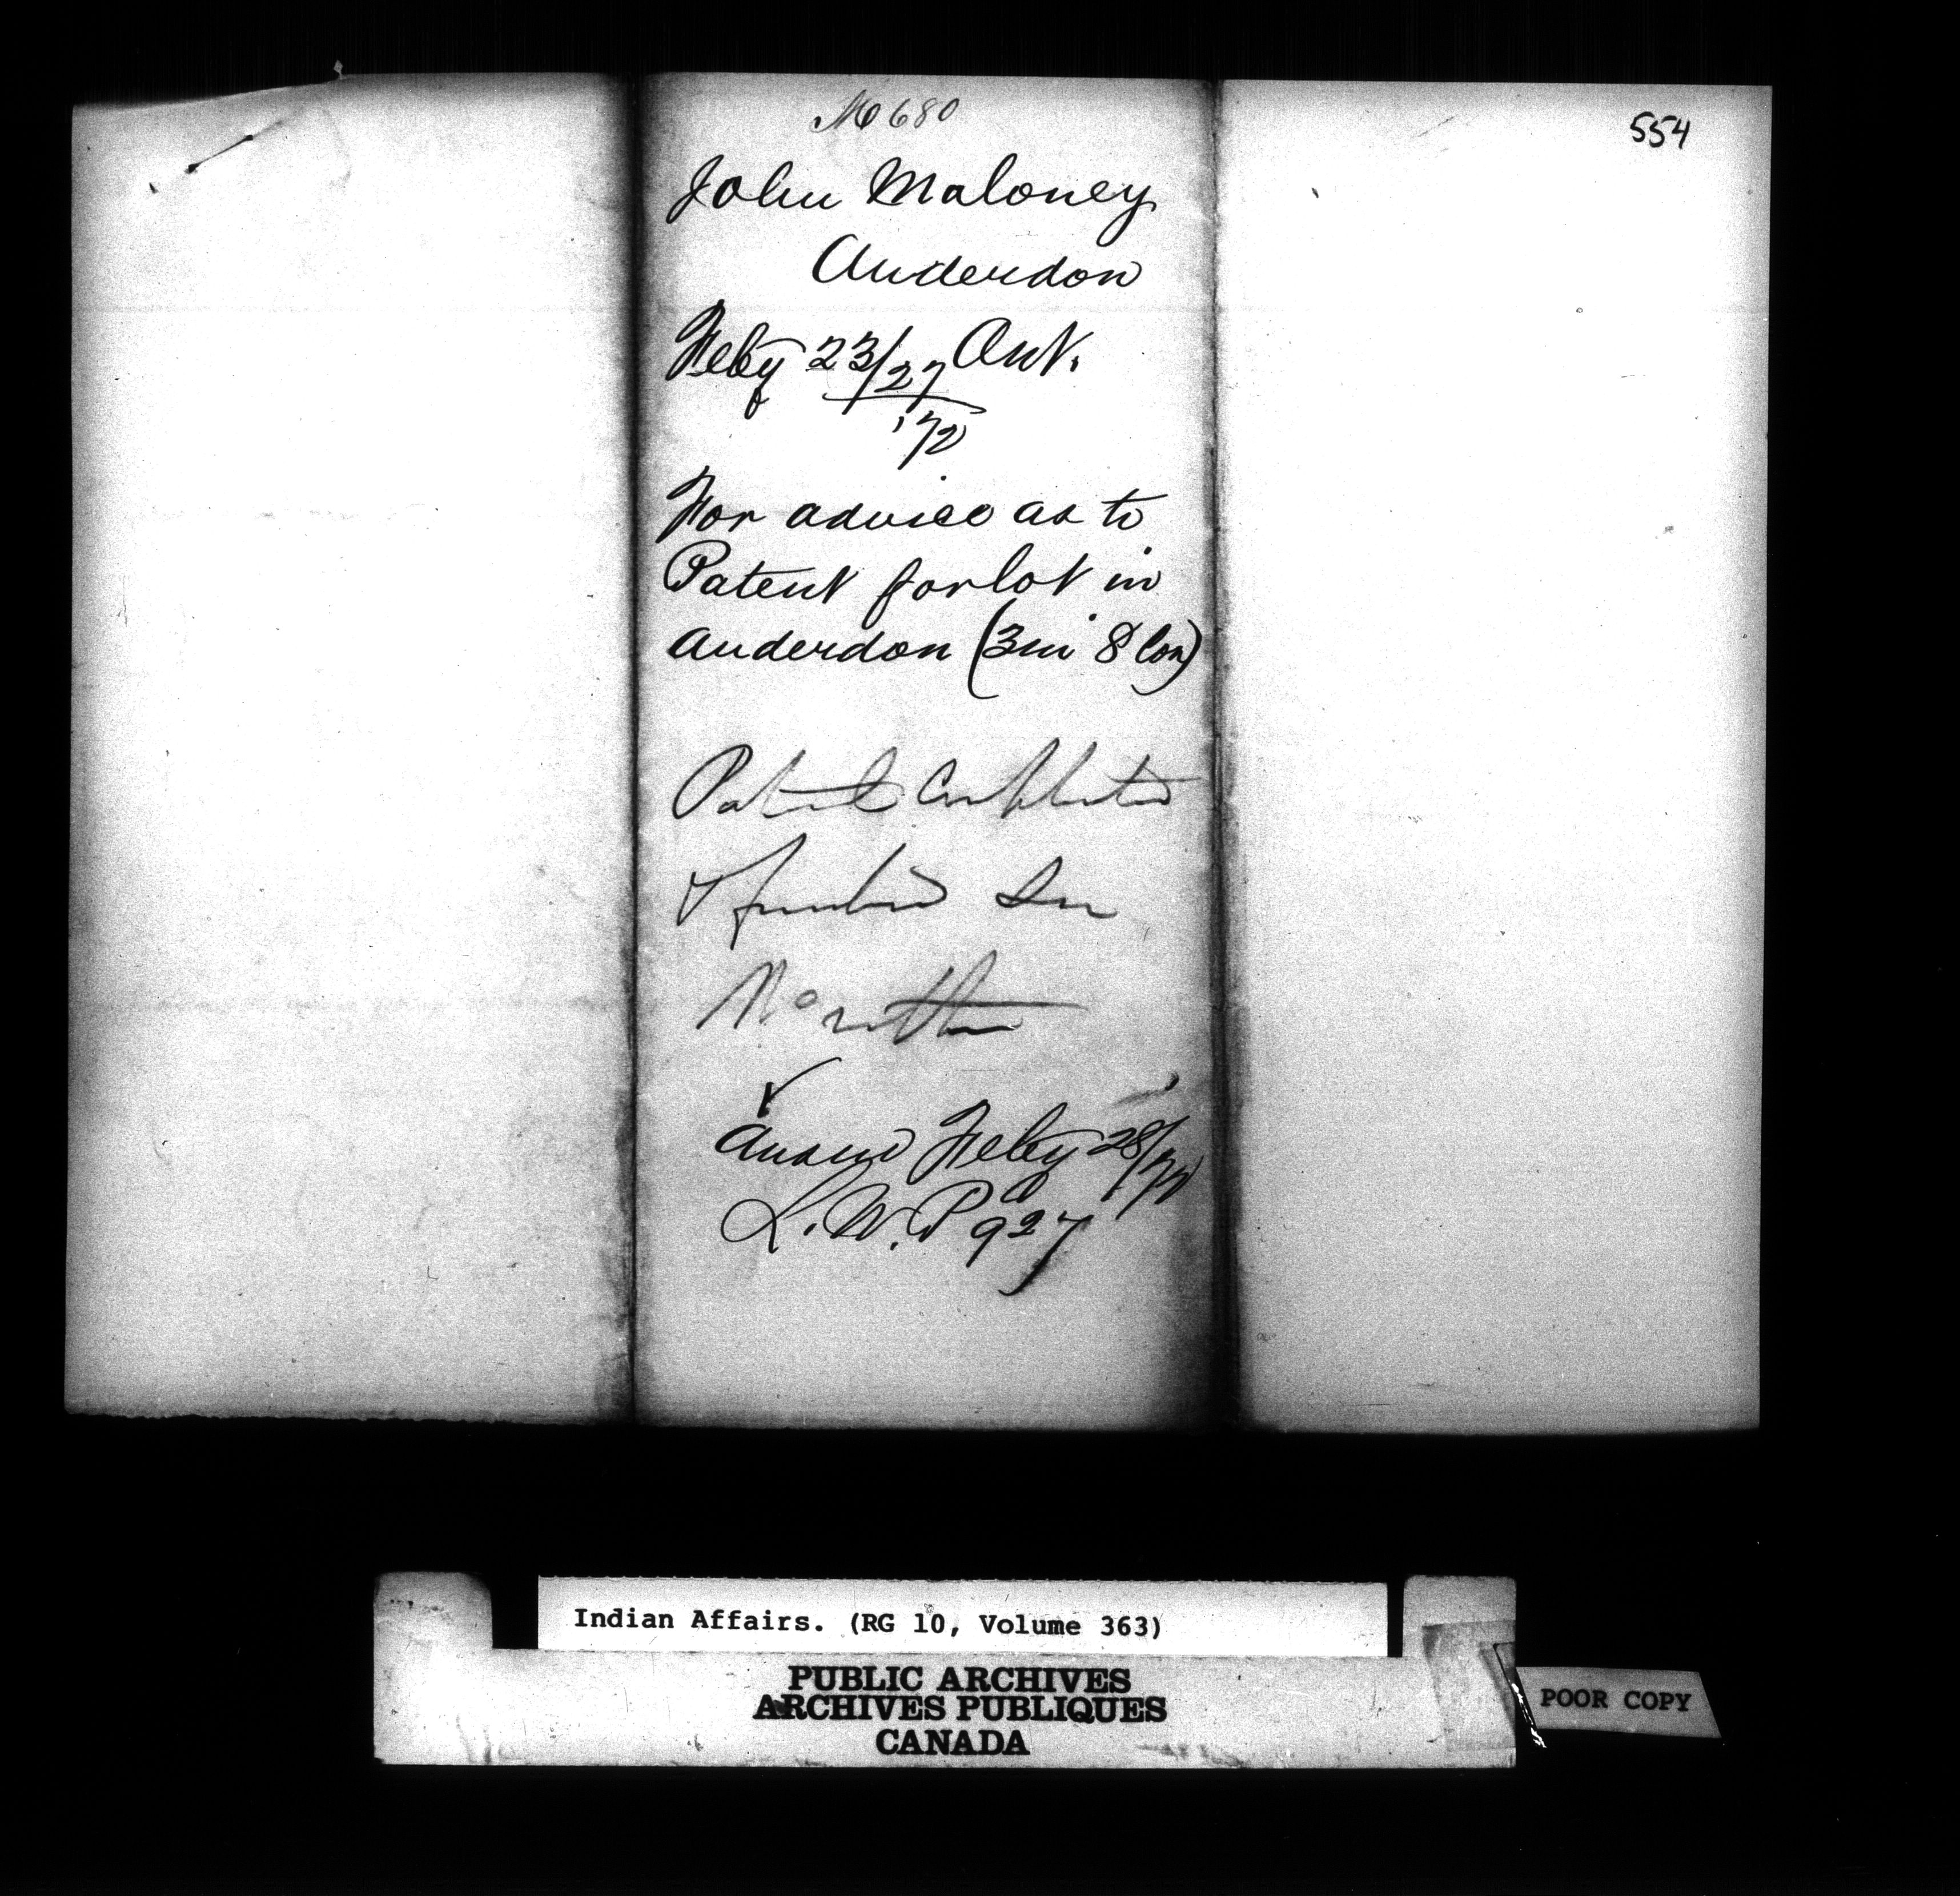 No 680
554
John Maloney
Anderdon
Feby 23/27 Ont.
'72
For advice as to
Patent for lot in
Anderdon (3 in 8 Con)
Patent Completed
&
No
Answd Feby 28/72
L.W.P 927
Indian Affairs. (RG 10, Volume 363)
PUBLIC ARCHIVES
ARCHIVES PUBLIQUES
CANADA
POOR COPY